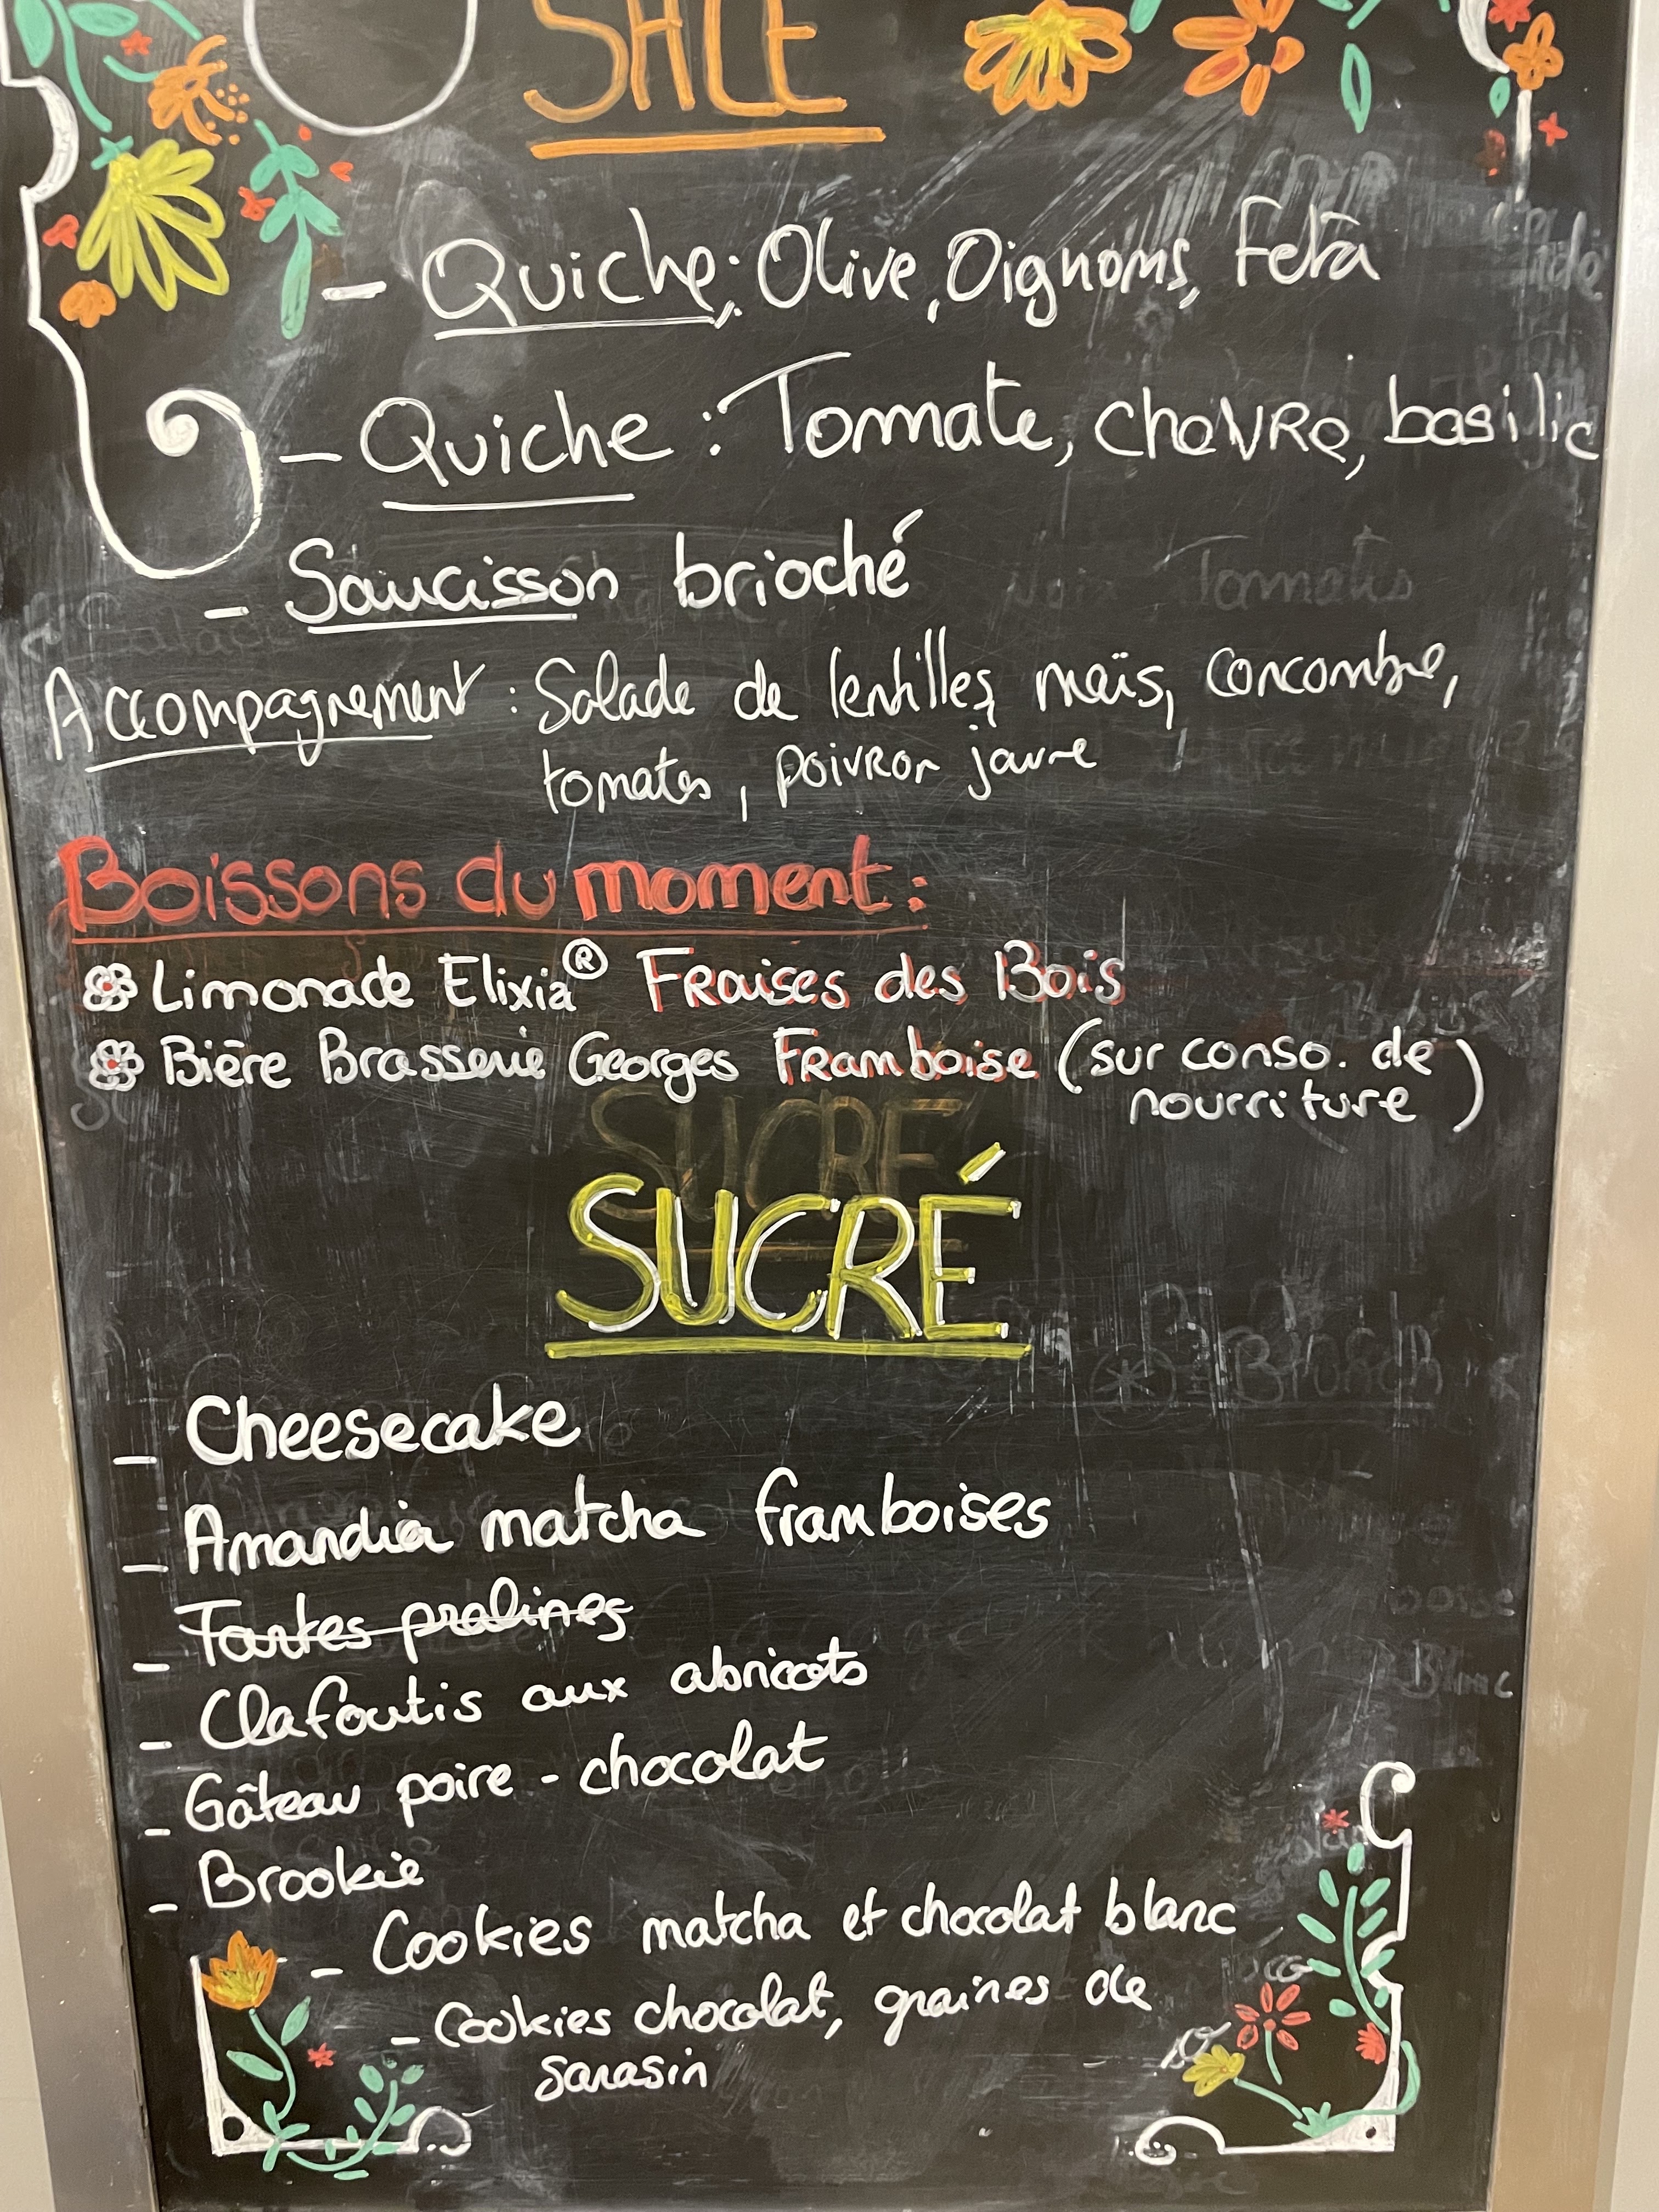 SALÉ
- Quiche : Olive, Oignons, Feta
- Quiche : Tomate, chèvre, basilic
- Saucisson brioché
Accompagnement : Salade de lentilles, maïs, concombre,
tomates, poivron jaune
Boissons du moment :
Limonade Elixia® Fraises des Bois
Bière Brasserie Georges Framboise (sur conso. de
nourriture)
SUCRÉ
- Cheesecake
- Amandia matcha framboises
- Tartes pralines
- Clafoutis aux abricots
- Gâteau poire - chocolat
- Brookie
- Cookies matcha et chocolat blanc
- Cookies chocolat, graines de
sarasin